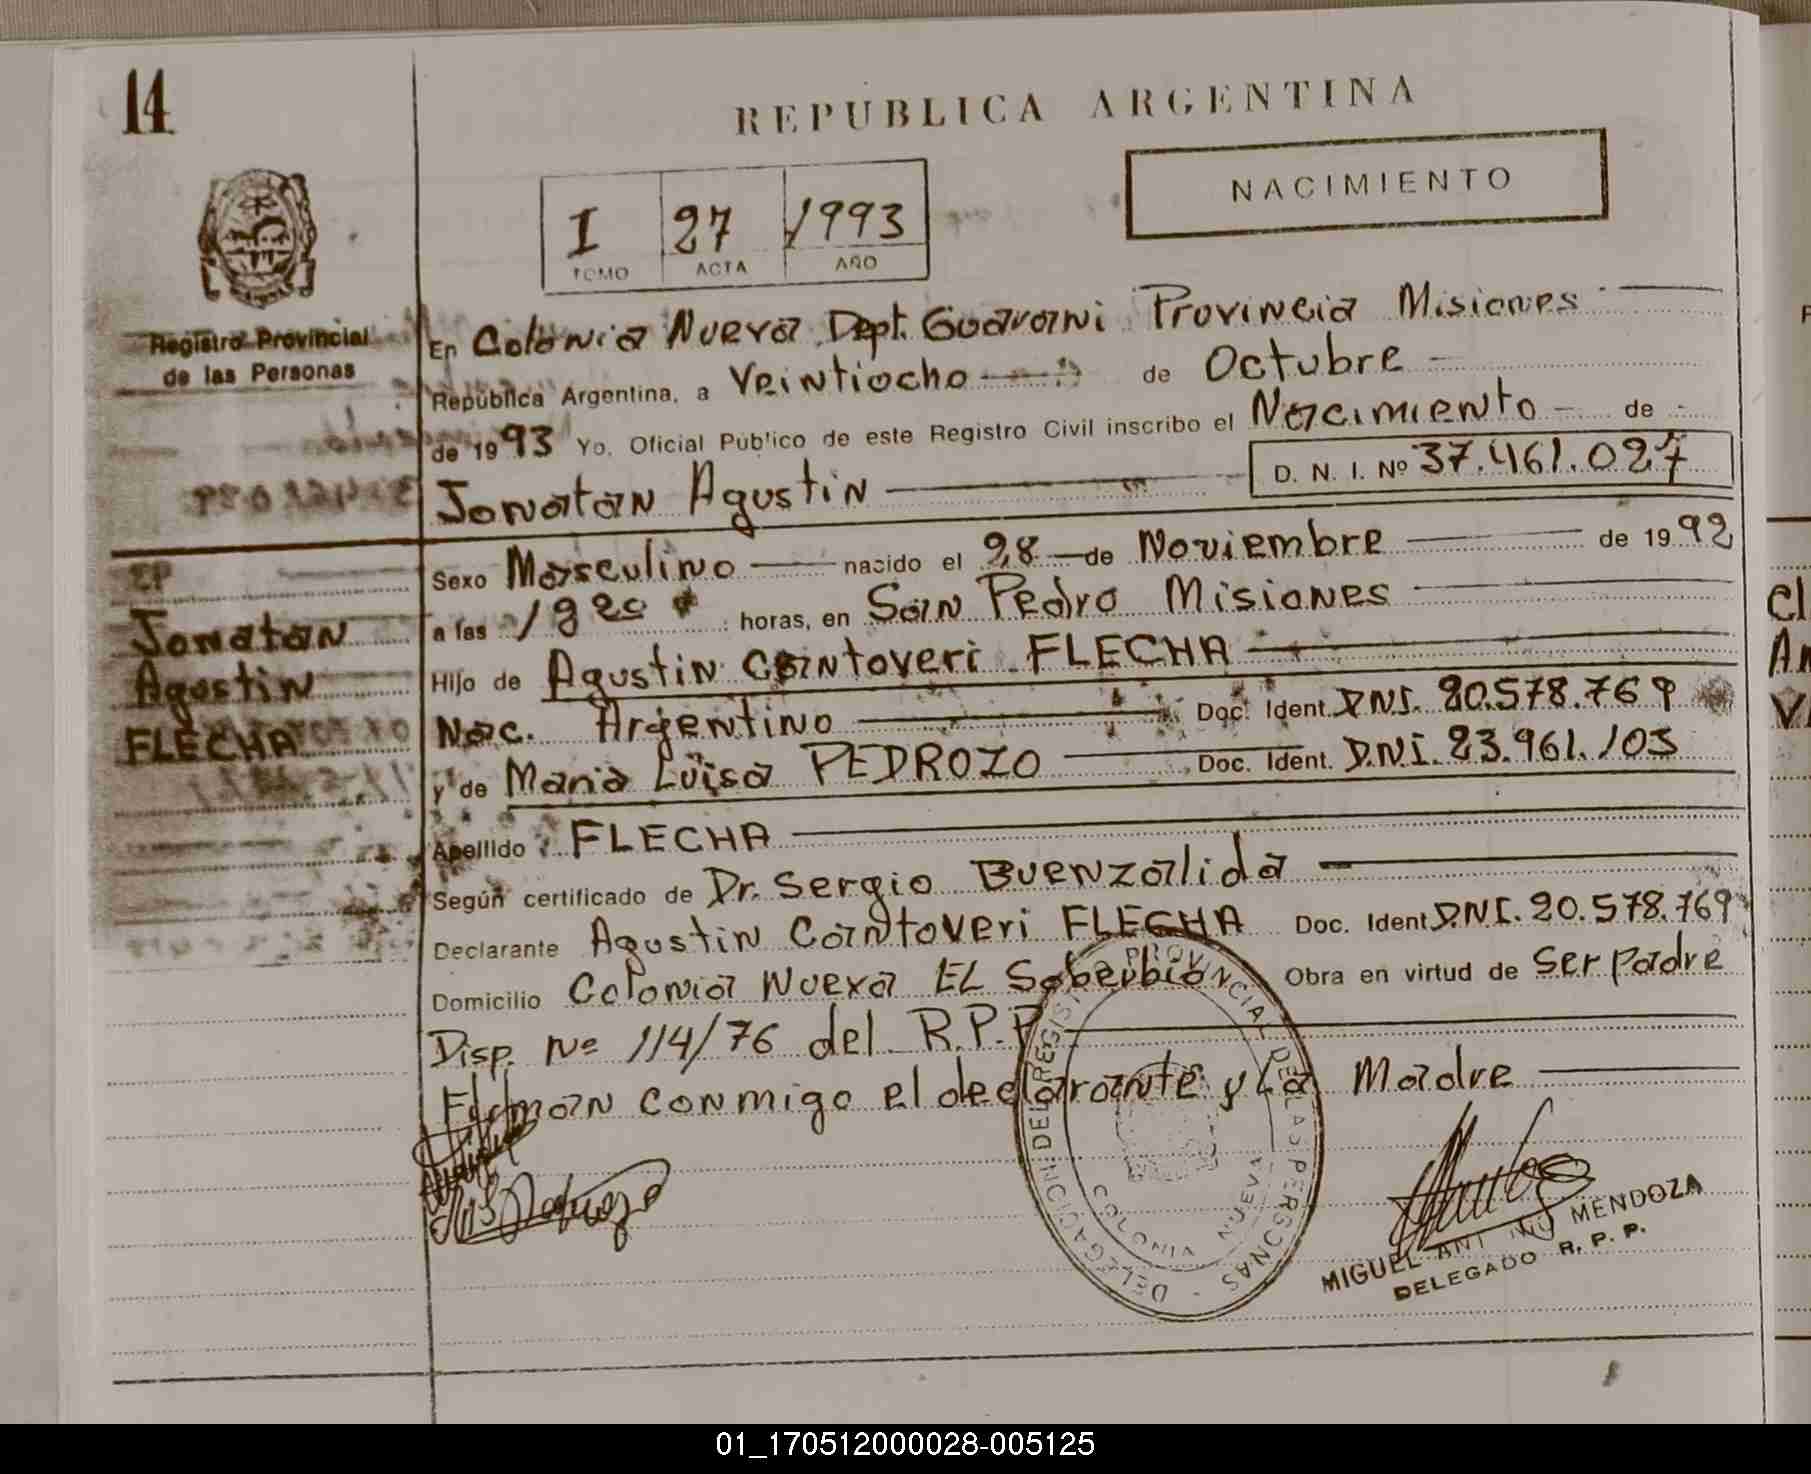 14
REPUBLICA ARGENTINA
NACIMIENTO
I 27 1993
TOMO ACTA AÑO
Registro Provincial
de las Personas
En Colonia Nueva Dept. Guarani Provincia Misiones
República Argentina, a Veintiocho de Octubre
de 1993 Yo, Oficial Público de este Registro Civil inscribo el Nacimiento de
Jonatan Agustin D. N. I. Nº 37.461.027
Sexo Masculino nacido el 28 de Noviembre de 1992
a las horas, en San Pedro Misiones
Jonatan
Agustin
FLECHA
Hijo de Agustin Cantoveri FLECHA
Nac. Argentino Doc. Ident. DNI. 20.578.769
y de Maria Luisa PEDROZO Doc. Ident. D.N.I. 23.961.103
Apellido FLECHA
Según certificado de Dr. Sergio Buenzalida
Declarante Agustin Cantoveri FLECHA Doc. Ident D.N.I. 20.578.769
Domicilio Colonia Nueva EL Soberbio Obra en virtud de Ser padre
Disp. Nº 114/76 del R.P.P.
Firman conmigo el declarante y La Madre
DELEGACION DEL REGISTRO PROVINCIAL DE LAS PERSONAS
COLONIA NUEVA
MIGUEL MENDOZA
DELEGADO R. P. P.
01_170512000028-005125